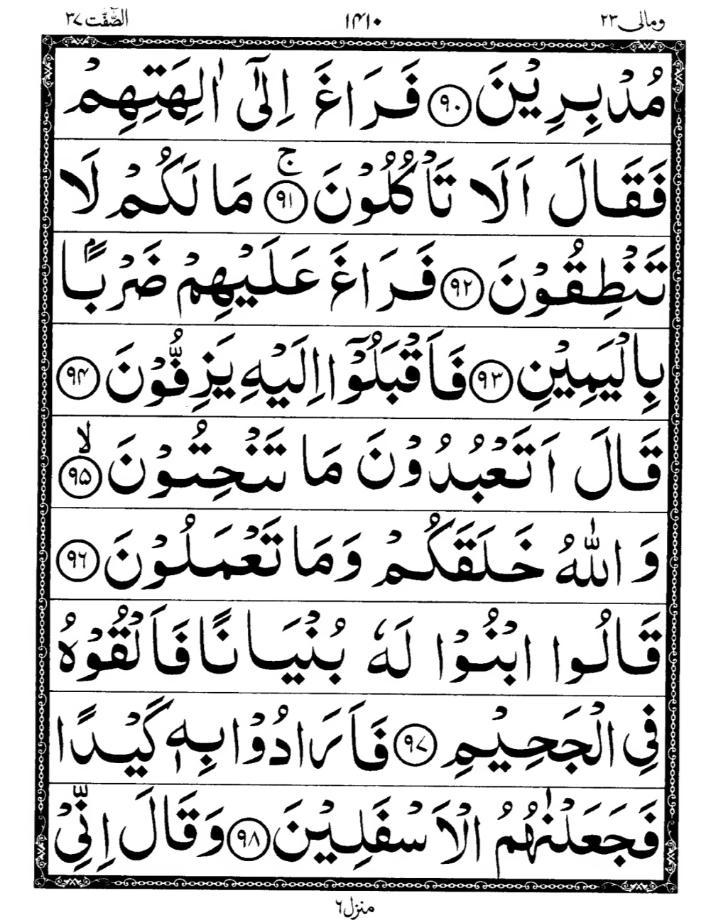 ومالی ۲۳ ۱۴۱۰ الصّٰٓفّٰت ۳۷
مُدْبِرِيْنَ ﴿۹۰﴾ فَرَاغَ اِلٰٓى اٰلِهَتِهِمْ
فَقَالَ اَلَا تَاْكُلُوْنَ ۚ ﴿۹۱﴾ مَا لَكُمْ لَا
تَنْطِقُوْنَ ﴿۹۲﴾ فَرَاغَ عَلَيْهِمْ ضَرْبًۢا
بِالْيَمِيْنِ ﴿۹۳﴾ فَاَقْبَلُوْٓا اِلَيْهِ يَزِفُّوْنَ ﴿۹۴﴾
قَالَ اَتَعْبُدُوْنَ مَا تَنْحِتُوْنَ ۙ ﴿۹۵﴾
وَ اللّٰهُ خَلَقَكُمْ وَمَا تَعْمَلُوْنَ ﴿۹۶﴾
قَالُوا ابْنُوْا لَهٗ بُنْيَانًا فَاَلْقُوْهُ
فِي الْجَحِيْمِ ﴿۹۷﴾ فَاَرَادُوْا بِهٖ كَيْدًا
فَجَعَلْنٰهُمُ الْاَسْفَلِيْنَ ﴿۹۸﴾ وَقَالَ اِنِّيْ
منزل ۶